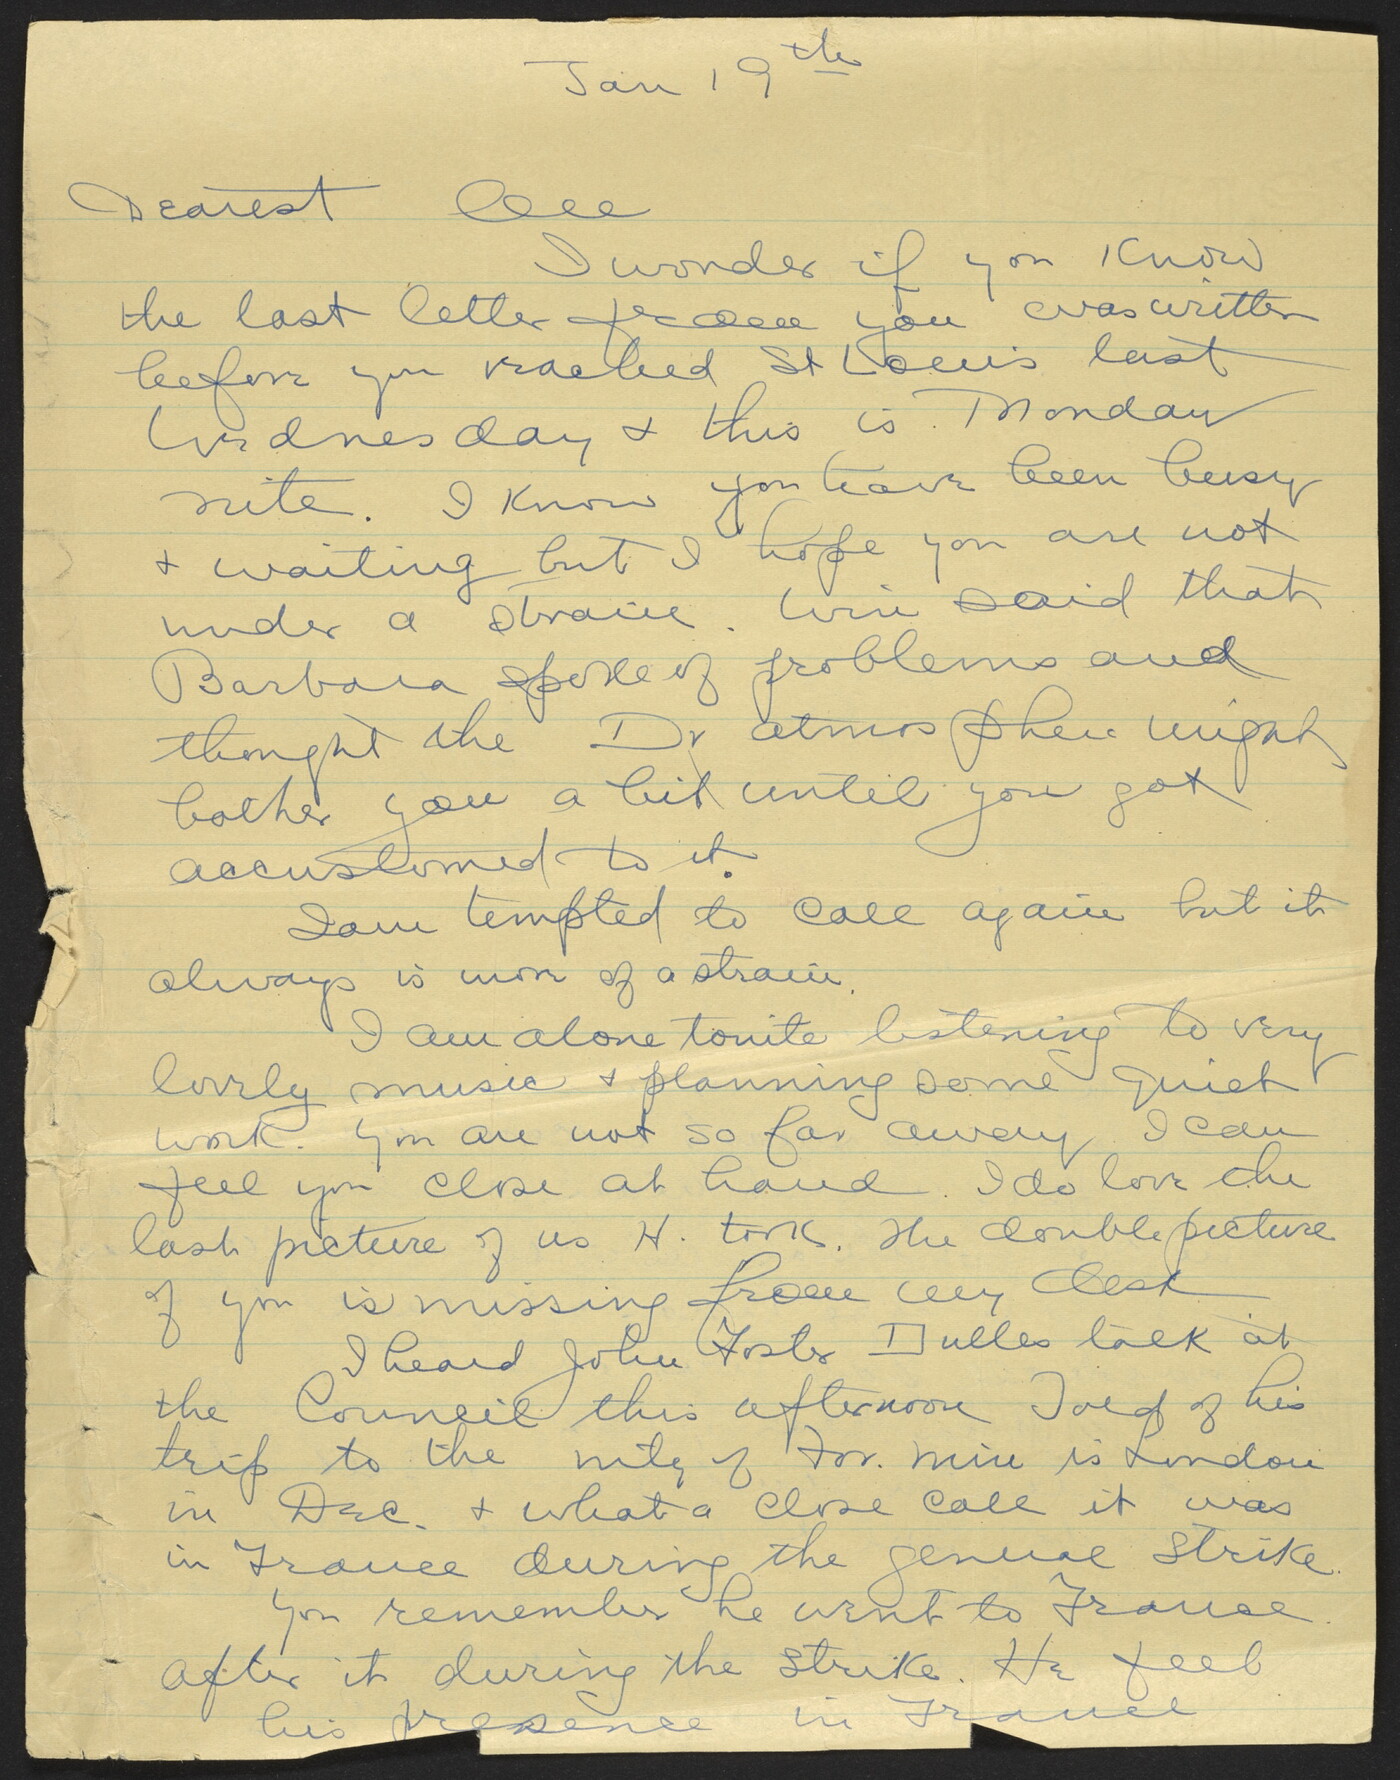 Jan 19th
Dearest
I wonder if you know
the last letter from you was written
before you reached St Louis last
Wednesday + this is Monday
nite. I know you have been busy
+ waiting but I hope you are not
under a strain. Win said that
Barbara spoke of problems and
thought the Dr atmosphere might
bother you a bit until you got
accustomed to it.
I am tempted to call again but it
always is more of a strain.
I am alone tonite listening to very
lovely music + planning some quiet
work. You are not so far away I can
feel you close at hand. I do love the
last picture of us H. took. The double picture
of you is missing from my desk
I heard John Foster Dulles talk at
the Council this afternoon Told of his
trip to the mtg of For. Min is London
in Dec. + what a close call it was
in France during the general strike.
You remember he went to France
after it during the strike. He feels
his presence in France